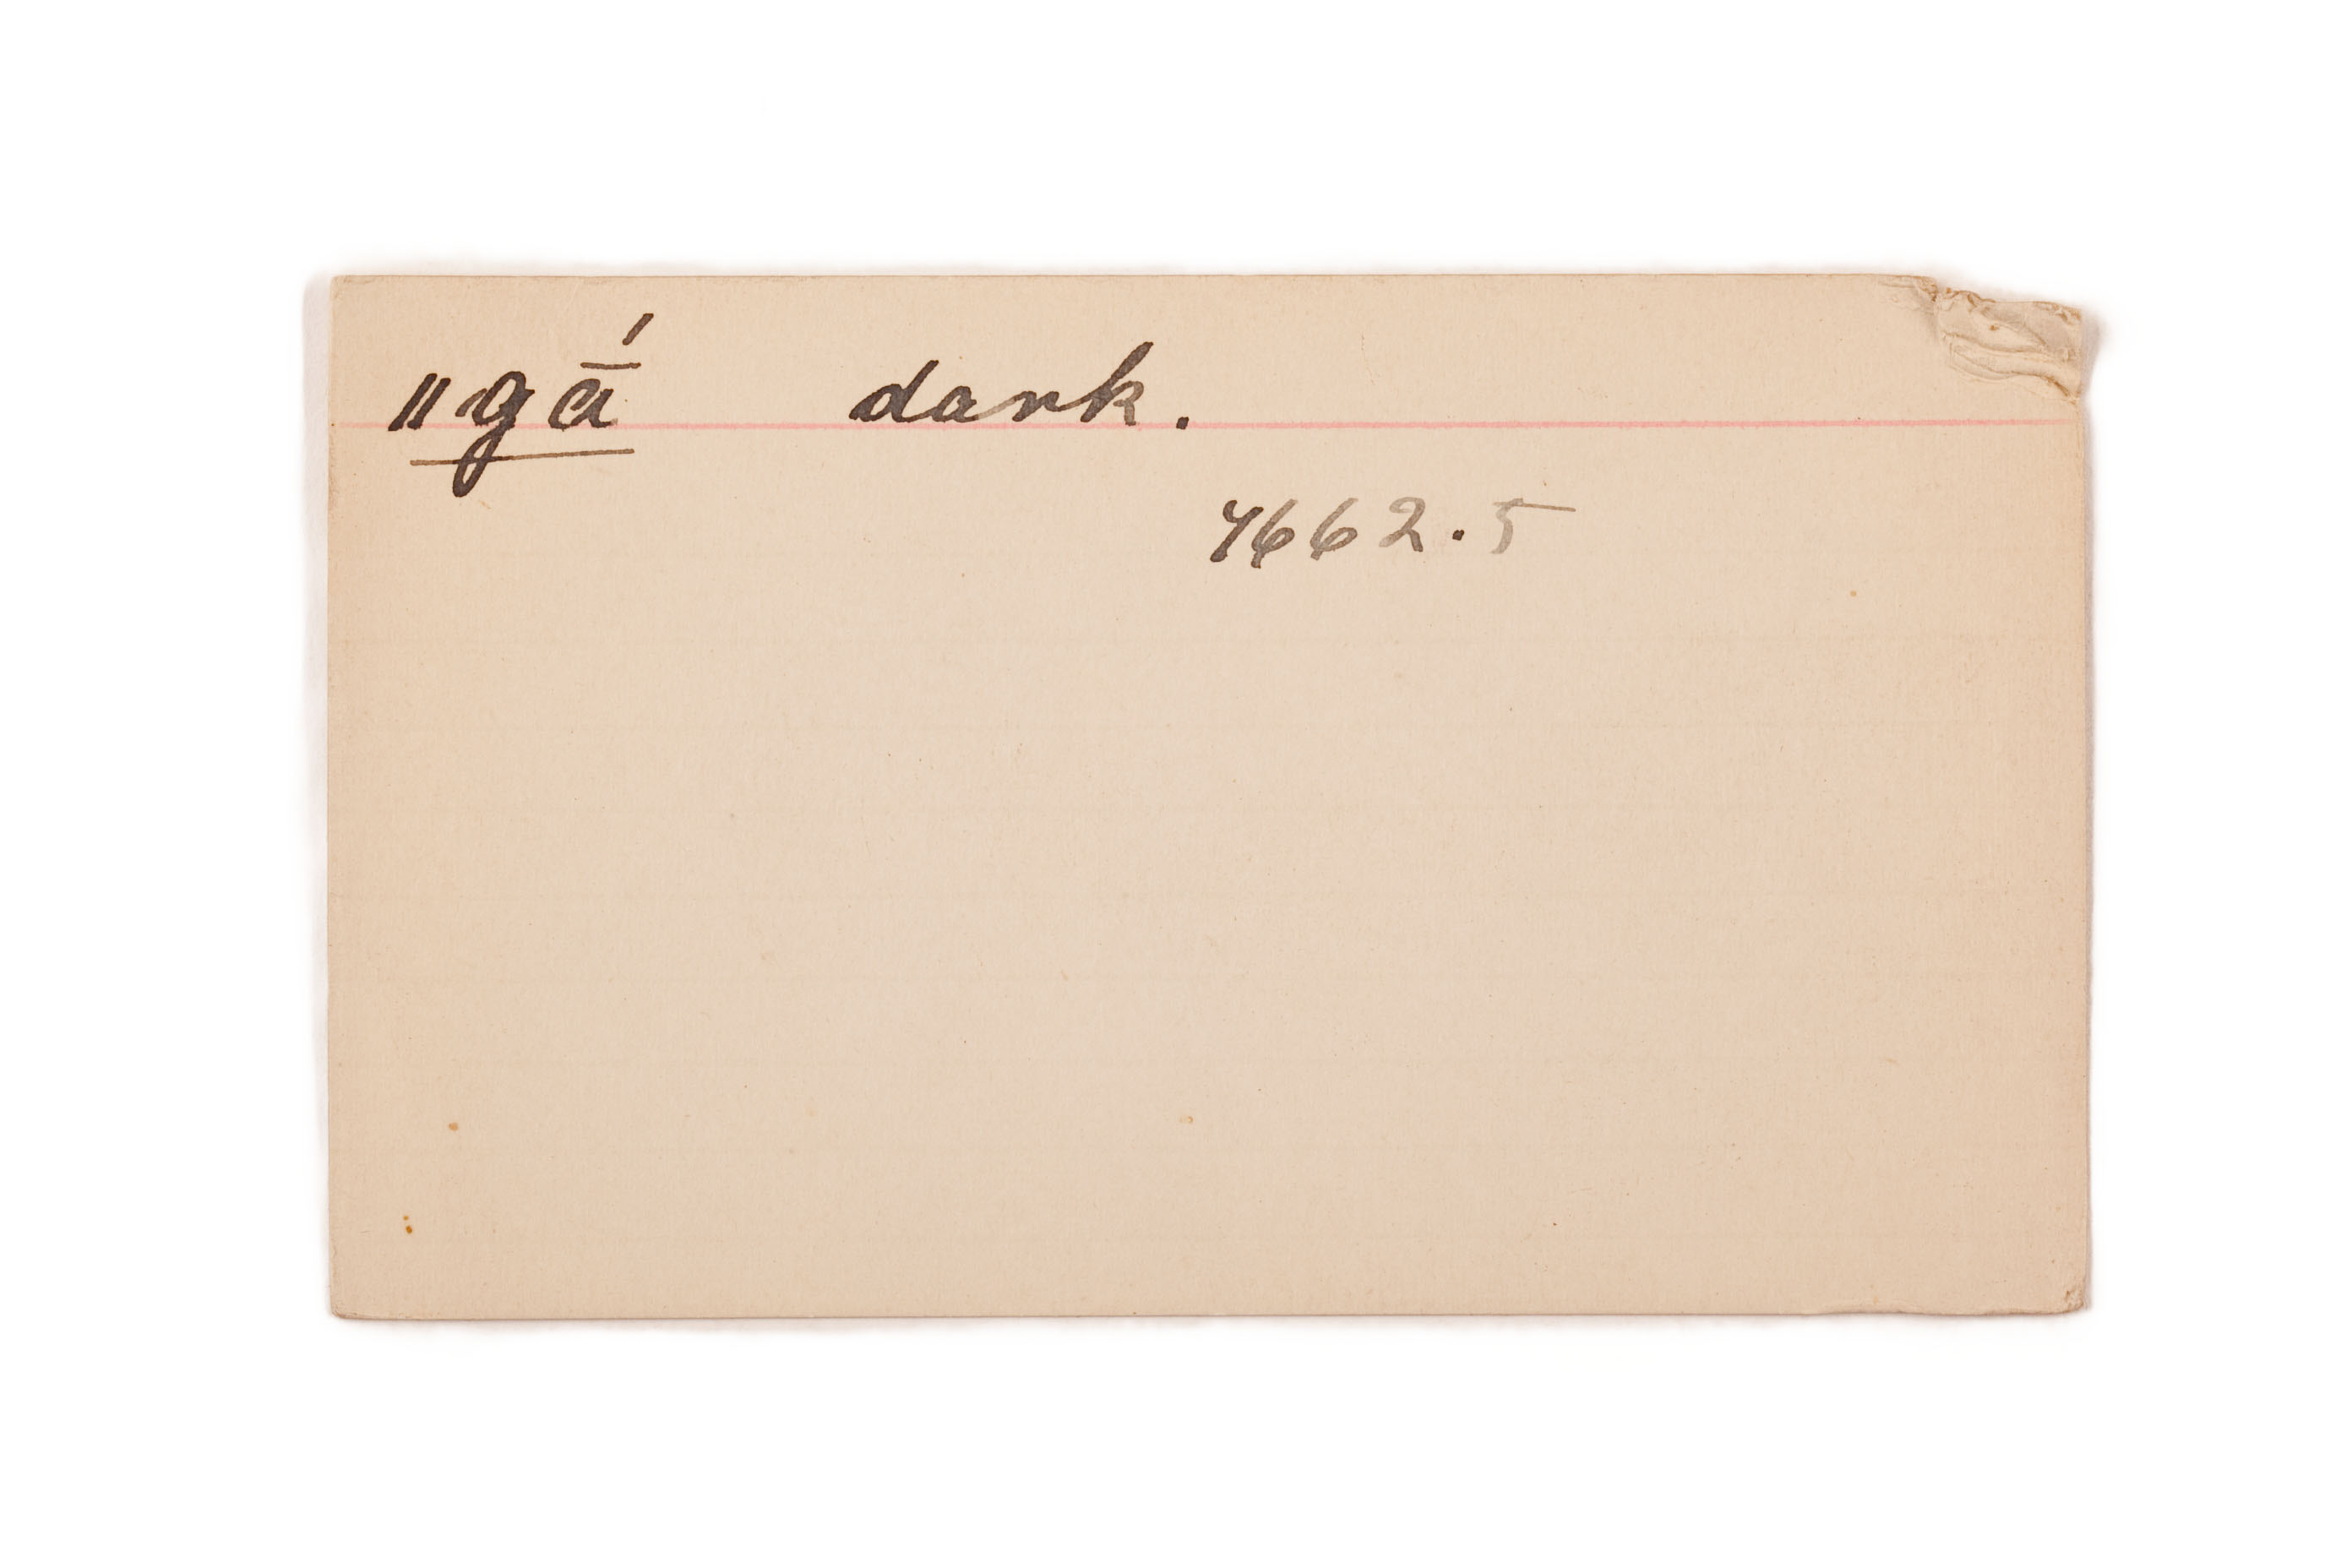 ǁgā́ dark.
7662.5